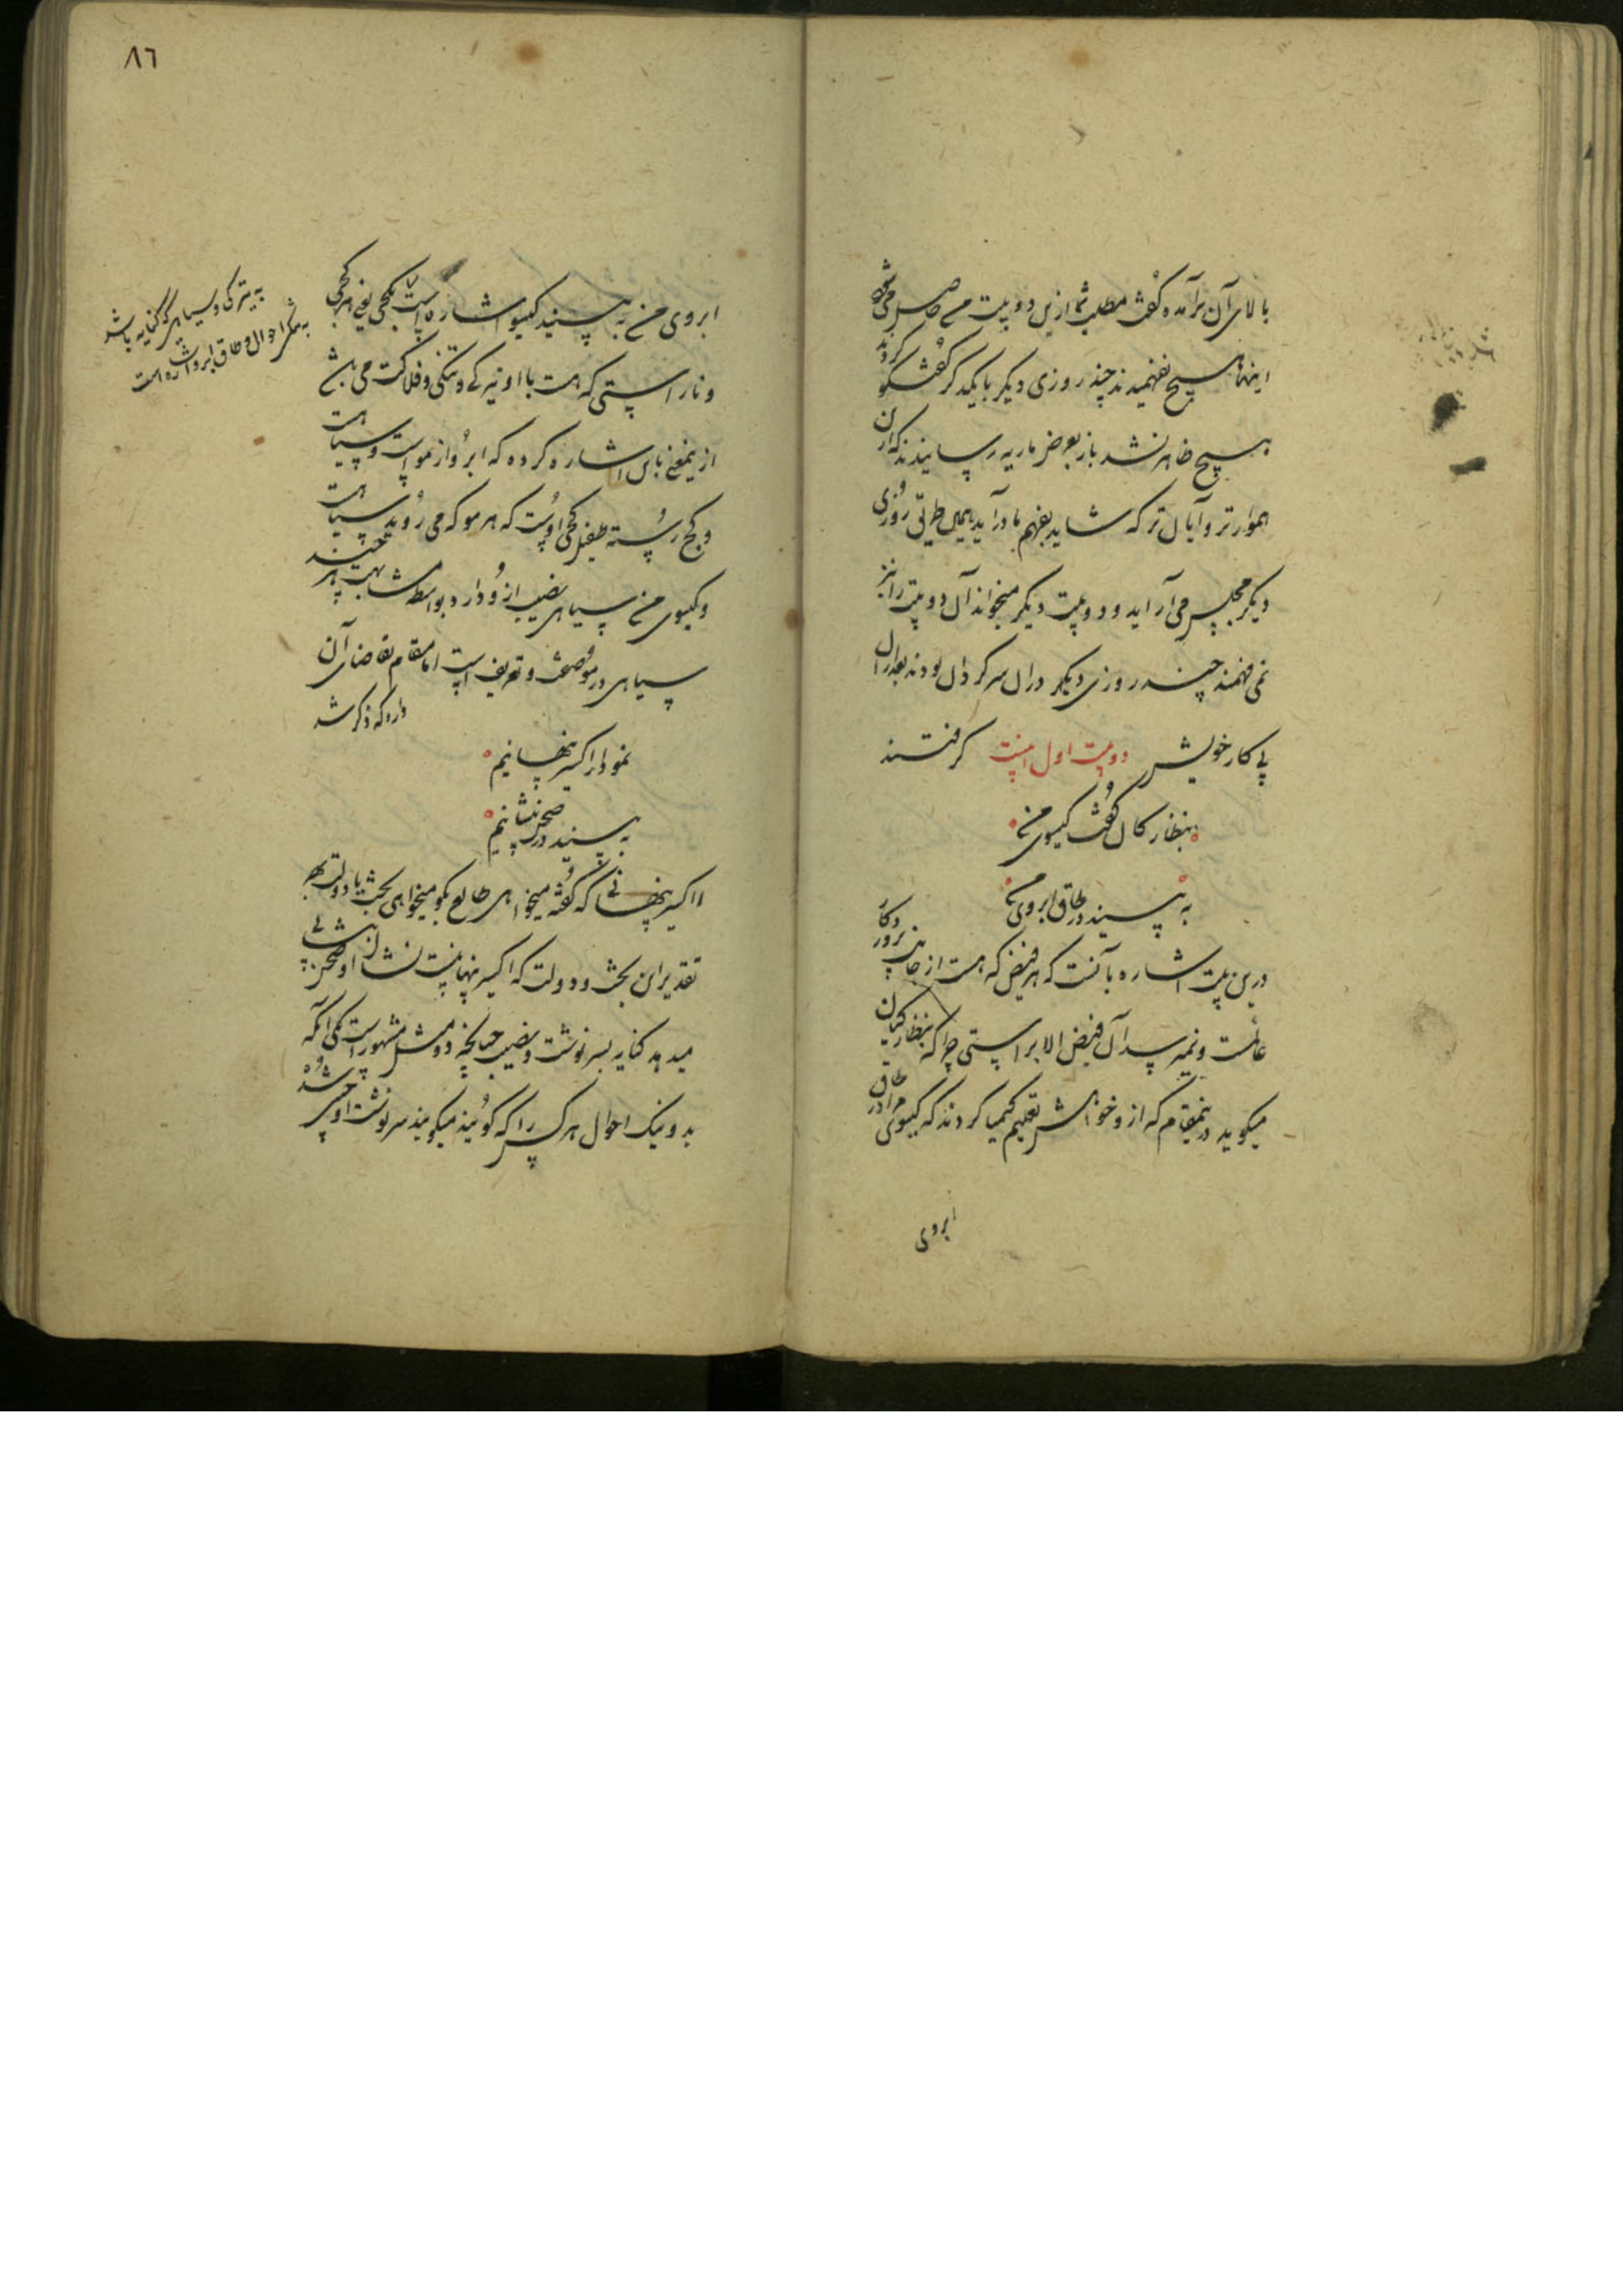 بالای آن برآمده گفت مطلب شما ازین دو بیت من حاصل می شود
اینها هیچ نفهمیدند چند روزی دیگر با یکدیگر گفتگو کردند
هیچ ظاهر نشد باز بعرض ماریه رسانیدند که ازان
هموارتر و آسان تر که شاید بفهم ما درآید بهمین طریق روزی
دیگر مجلس می آراید و دو بیت دیگر میخواند آن دو بیت را نیز
نمی فهمند چند روزی دیگر دران سرگردان بودند بعد ازان
پی کار خویش گرفتند دو بیت اول اینست
بنظارکان گفت گیسوی من
به بینید در طاق ابروی من
درین بیت اشاره بآنست که هر فیض که هست از جانب پروردکار
عالمست و نمیرسد آن فیض الا براستی چرا که بنظارکیان
میکوید درینمقام که ازو خواهش تعلیم کیمیا کردند که گیسوی مرا در طاق
ابروی
٨٦
ابروی من به بینید گیسو اشاره است بکجی یعنی هر کجی
و ناراستی که هست با او تیرگی و تنگی و فلاکت می باشد
ازینمعنی باین اشاره کرده که ابرو از مو است و سیاهست
و کج رسته طفیل کجی اوست که هر مو که می روید سیاهست
و گیسوی من سیاهی نصیب ازو دارد بواسطه مشابهت هر چند
سیاهی در مو صفت و تعریف است اما مقام تقاضای آن
دارد که ذکر شد
به تیرکی و سیاهی که کنایه باشد
به تنگی احوال و طاق ابرو اشاره است
نمودار اکسیر پنهانیم
به بینید در صحن پیشانیم
اکسیر پنهانی که گفته میخواهی طالع بگو میخواهی بخت یا دولت بهر
تقدیر این بخت و دولت که اکسیر پنهانیست نشان او صحن پیشانی
میدهد کنایه بسرنوشت و نصیب چنانچه دو مثل مشهور است یکی آنکه
بد و نیک احوال هر کس را که گویند میکویند سرنوشت او چنین شده